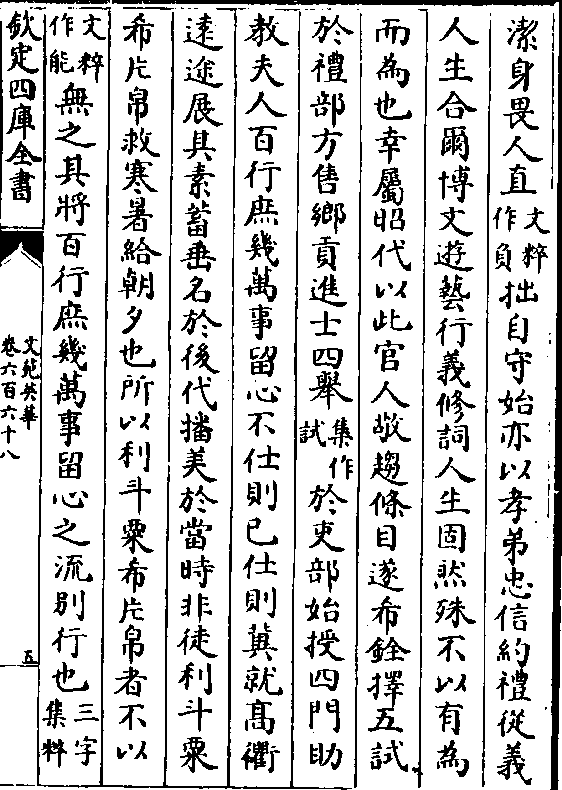 潔身畏人直文粹作負拙自守始亦以孝弟忠信約禮從義
人生合爾博文遊藝行義修詞人生固然殊不以有為
而為也幸屬昭代以此官人敬趨條目遂希銓擇五試
於禮部方售鄉貢進士四舉集作試於吏部始授四門助
教夫人百行庶幾萬事留心不仕則已仕則冀就高衢
遠途展其素蓄垂名於後代播美於當時非徒利斗粟
希片帛救寒暑給朝夕也所以利斗粟希片帛者不以
文粹作能無之其將百行庶幾萬事留心之流別行也三字集粹
欽定四庫全書
文苑英華
卷六百六十八
五